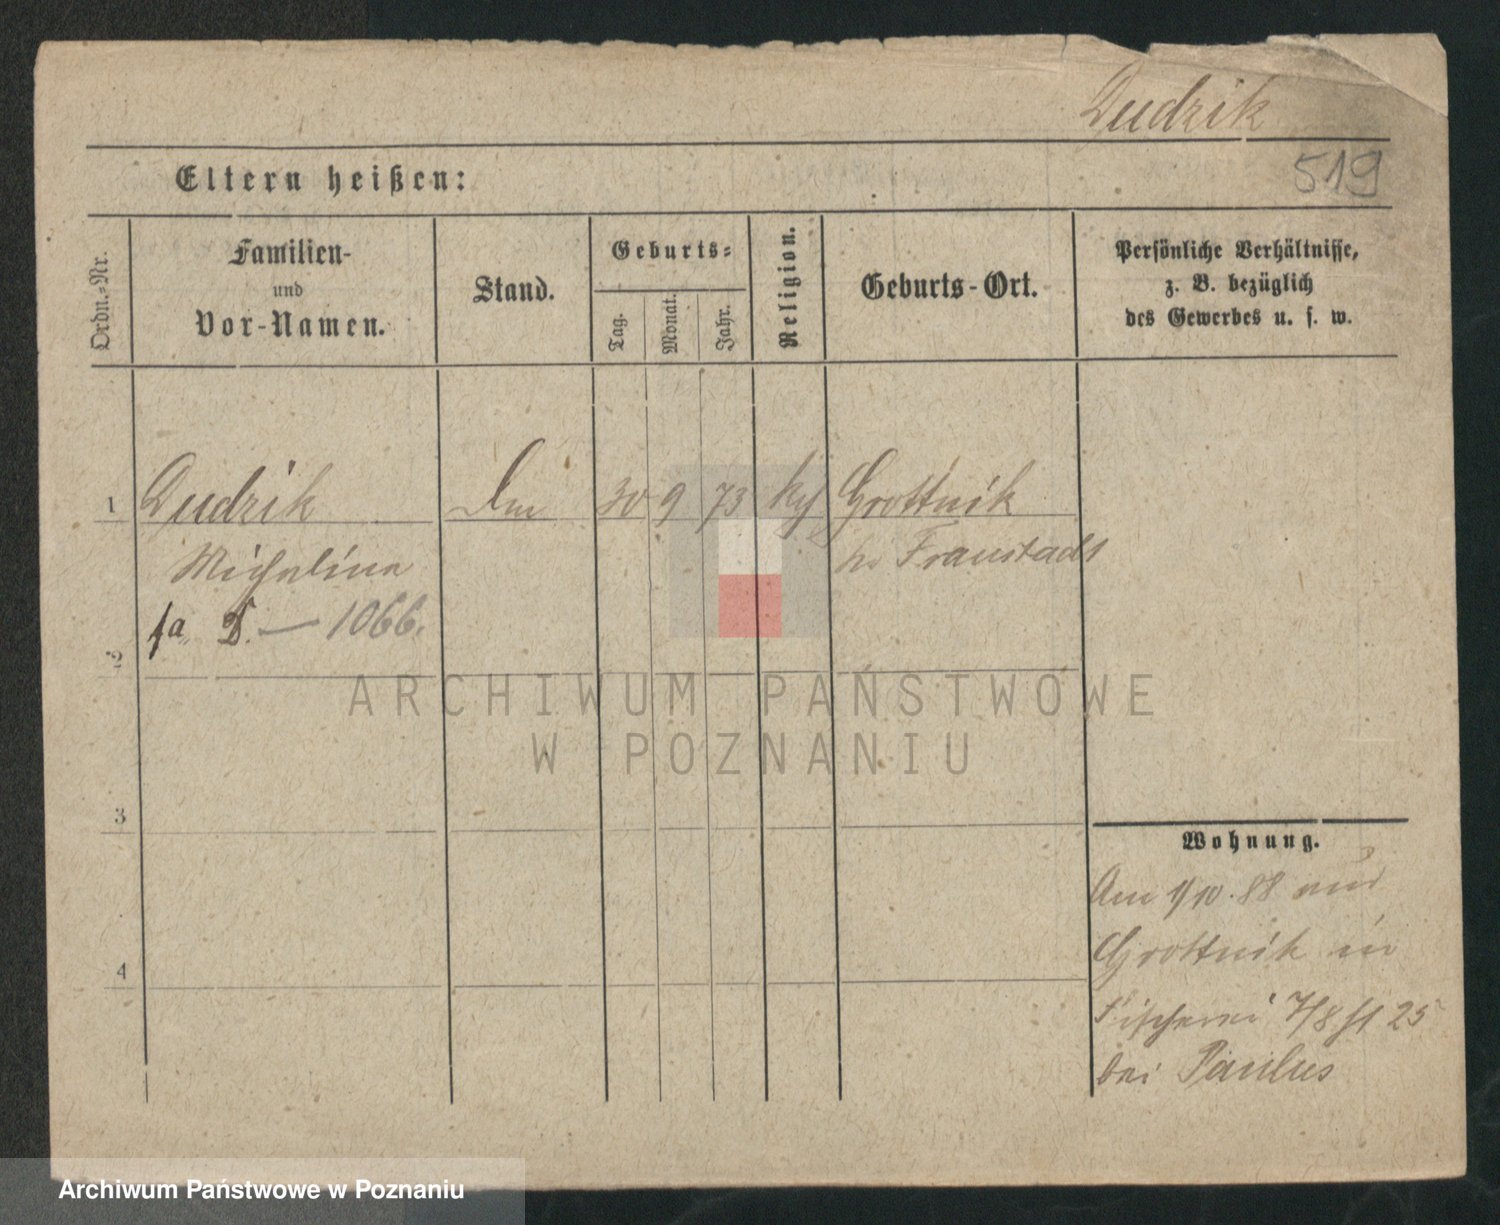 Dudzik
519
Eltern heißen:
Ordn.-Nr.
Familien-
und
Vor-Namen.
Stand.
Geburts-
Tag.
Monat.
Jahr.
Religion.
Geburts-Ort.
Persönliche Verhältnisse,
z. B. bezüglich
des Gewerbes u. s. w.
1 Dudzik 30 9 73 Grottnik
Michalina
bei Fraustadt
D. — 1066.
2
ARCHIWUM PAŃSTWOWE
W POZNANIU
3
Wohnung.
Am 1/10. 88 aus
Grottnik in
Fischerei 7/8 25
bei Paulus
4
Archiwum Państwowe w Poznaniu